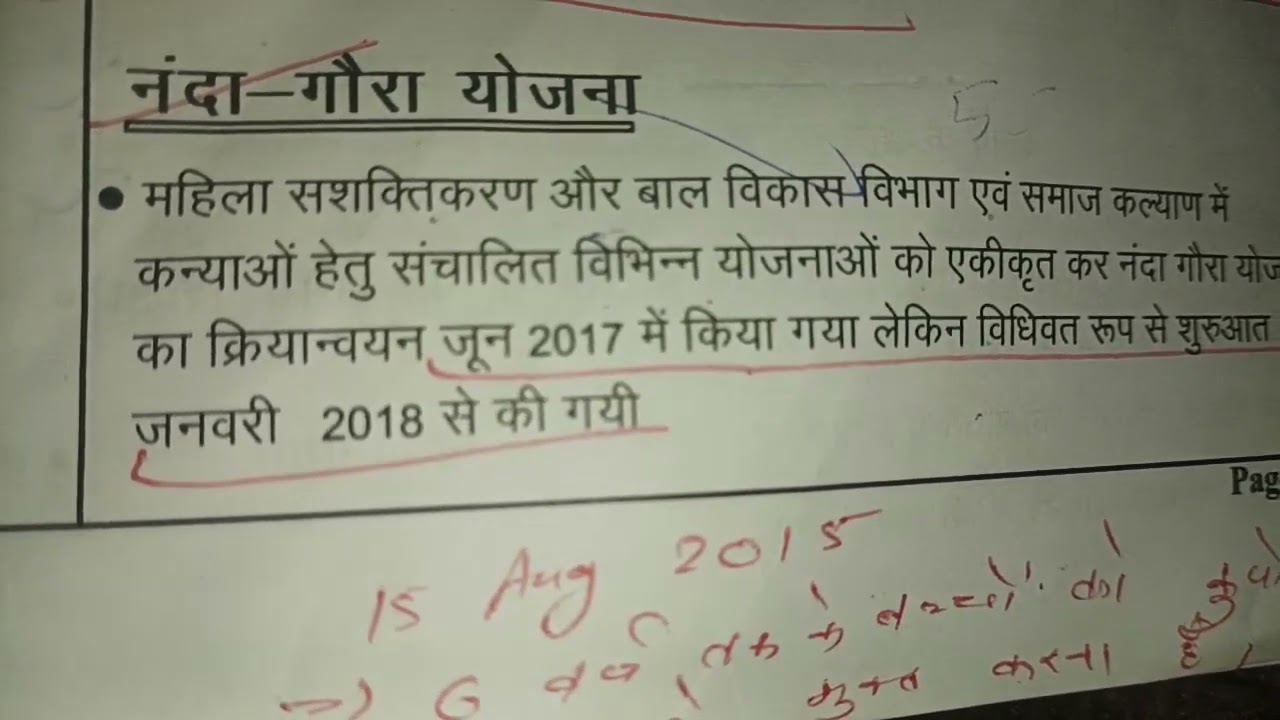 नंदा–गौरा योजना
• महिला सशक्तिकरण और बाल विकास विभाग एवं समाज कल्याण में
कन्याओं हेतु संचालित विभिन्न योजनाओं को एकीकृत कर नंदा गौरा योज
का क्रियान्वयन जून 2017 में किया गया लेकिन विधिवत रूप से शुरुआत
जनवरी 2018 से की गयी
Pag
15 Aug 2015
→ 6 वर्ष तक के बच्चों को
मुक्त करना है,